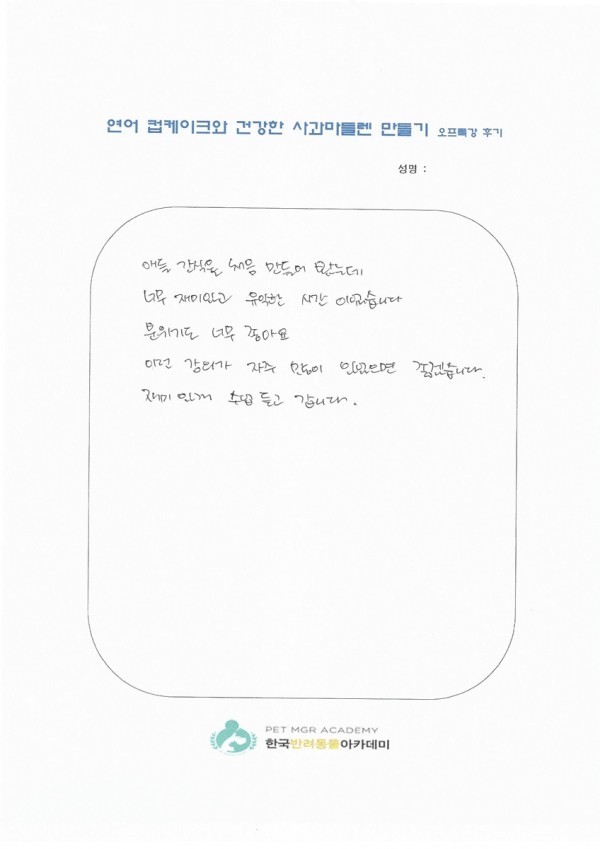 연어 컵케이크와 건강한 사과마들렌 만들기 오프특강 후기
성명 :
애들 간식을 처음 만들어 봤는데
너무 재미있고 유익한 시간 이었습니다
분위기도 너무 좋아요
이런 강의가 자주 많이 있었으면 좋겠습니다.
재미 있게 수업 듣고 갑니다.
PET MGR ACADEMY
한국반려동물아카데미